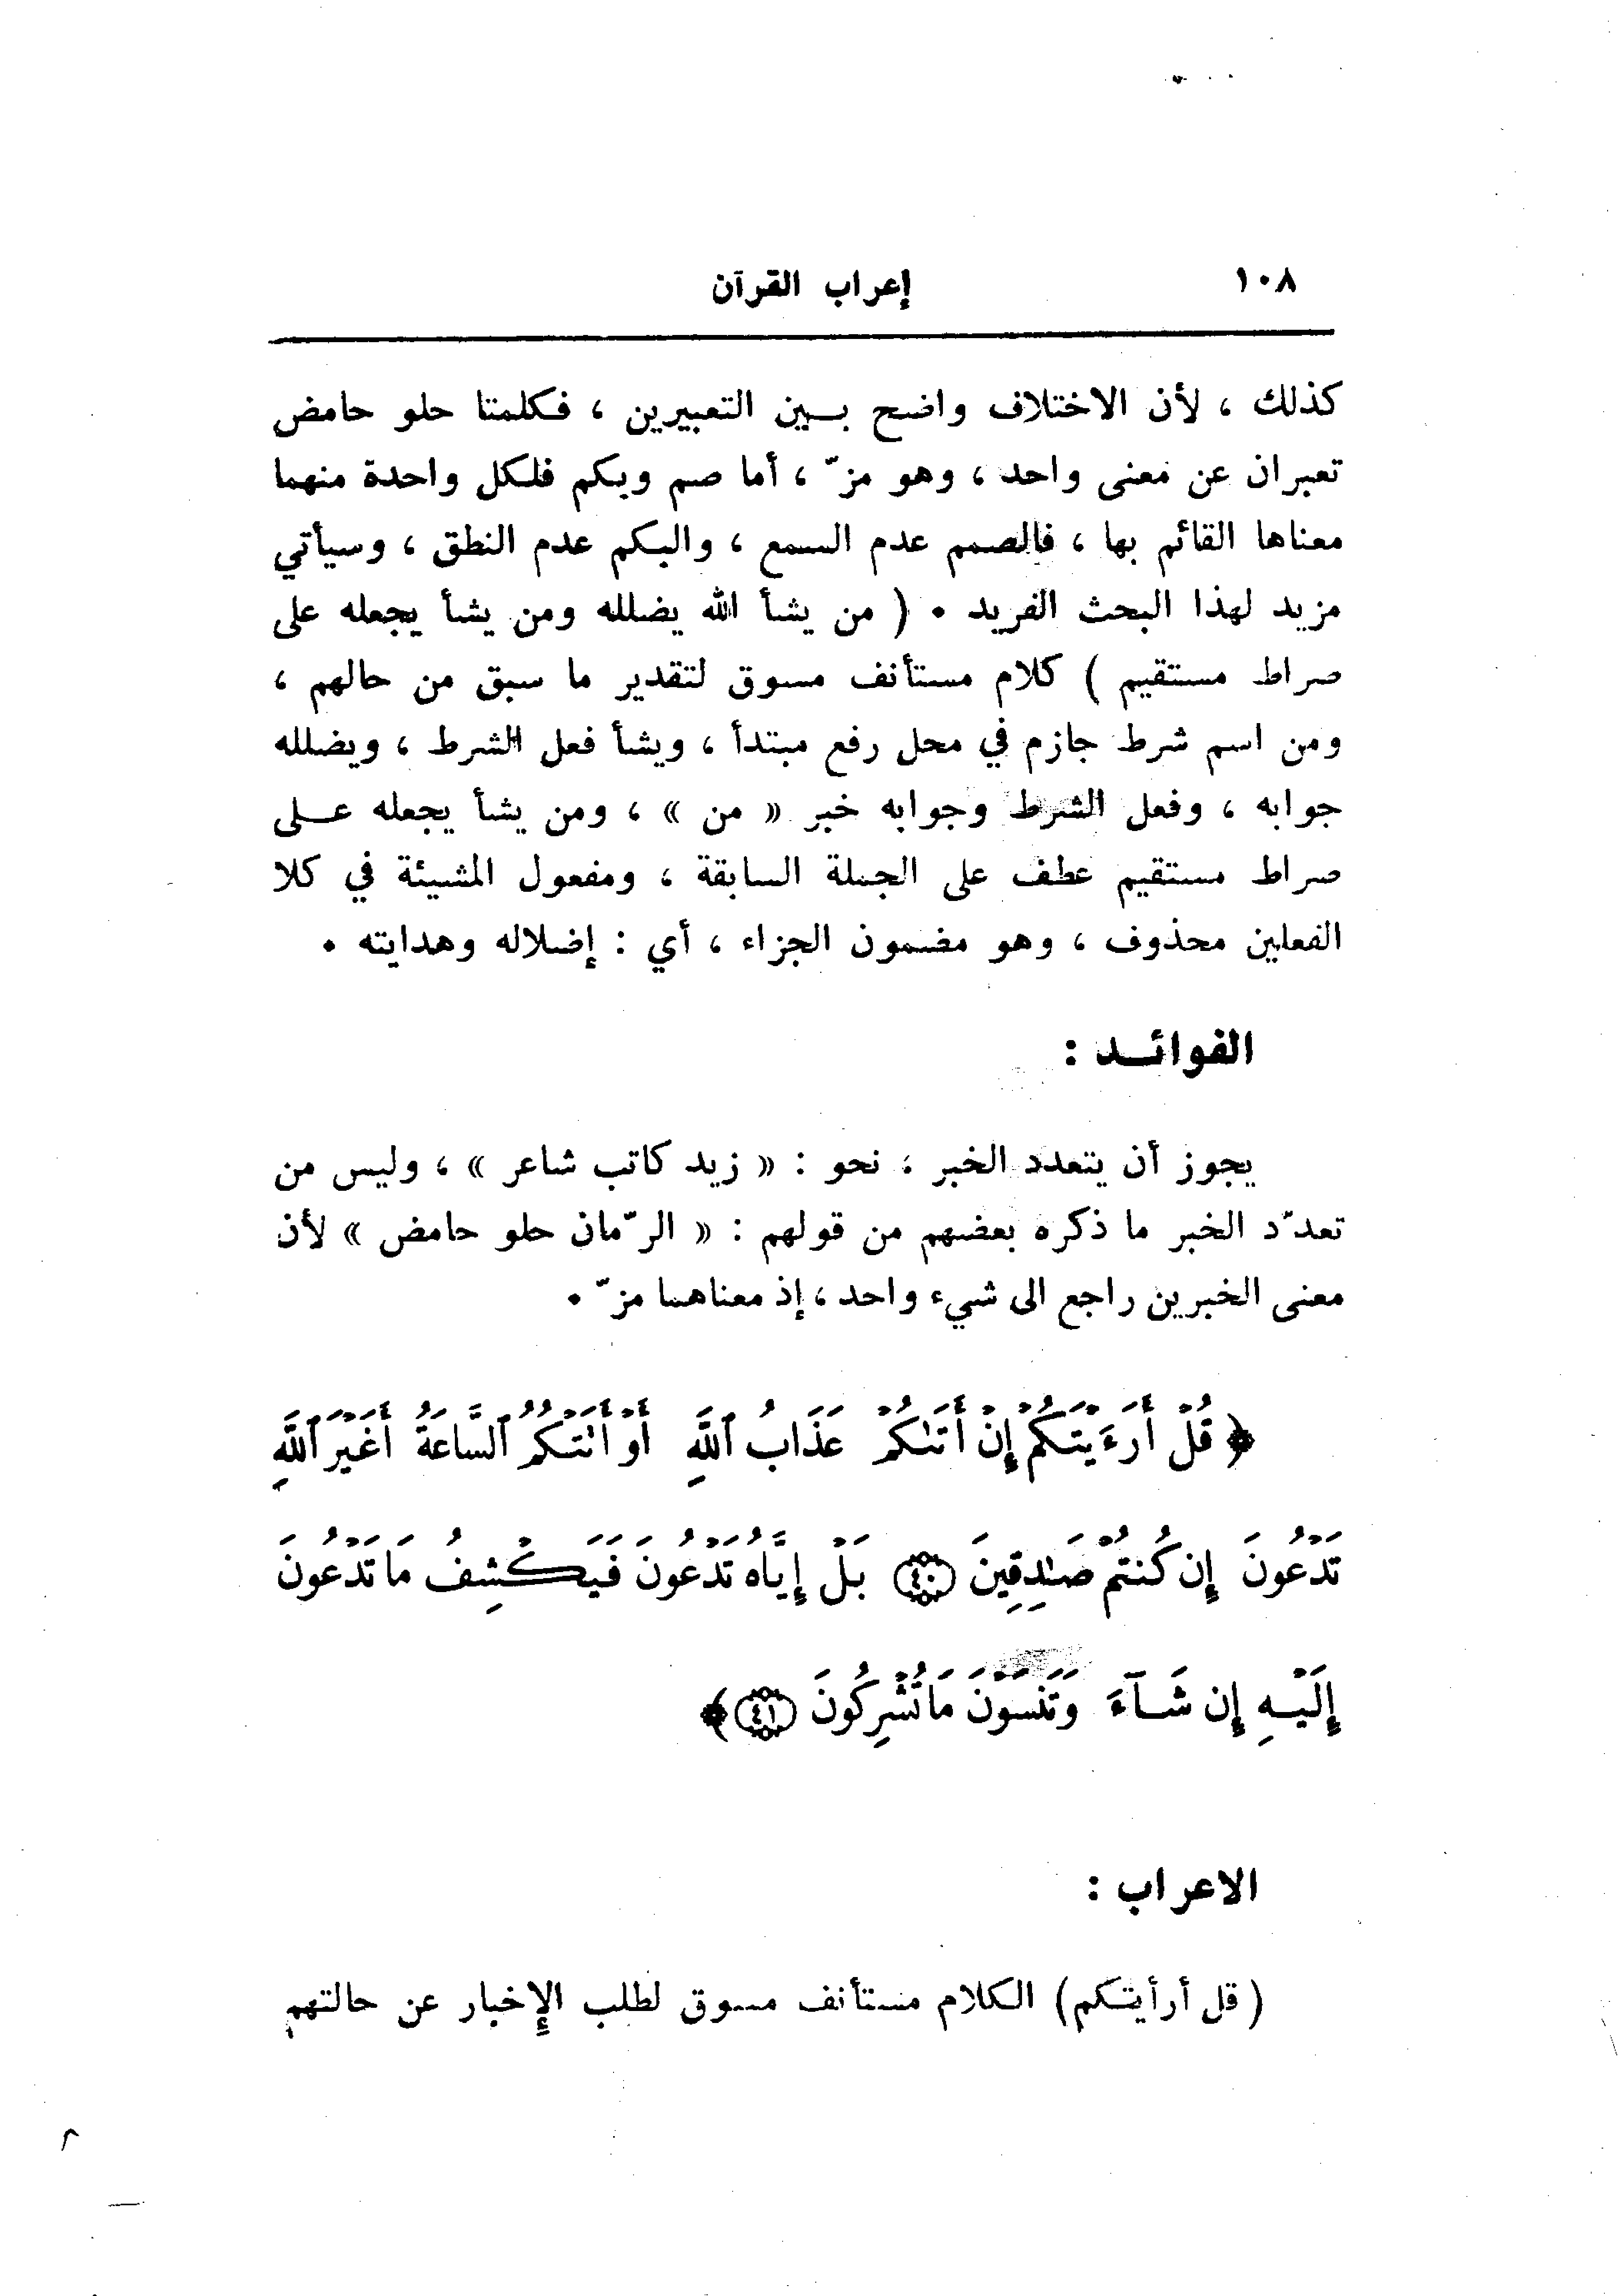 ١٠٨ إعراب القرآن
كذلك ، لأن الاختلاف واضح بين التعبيرين ، فكلمتا حلو حامض
تعبران عن معنى واحد ، وهو مزّ ، أما صم وبكم فلكل واحدة منهما
معناها القائم بها ، فالصمم عدم السمع ، والبكم عدم النطق ، وسيأتي
مزيد لهذا البحث الفريد . ( من يشأ الله يضلله ومن يشأ يجعله على
صراط مستقيم ) كلام مستأنف مسوق لتقدير ما سبق من حالهم ،
ومن اسم شرط جازم في محل رفع مبتدأ ، ويشأ فعل الشرط ، ويضلله
جوابه ، وفعل الشرط وجوابه خبر « من » ، ومن يشأ يجعله على
صراط مستقيم عطف على الجملة السابقة ، ومفعول المشيئة في كلا
الفعلين محذوف ، وهو مضمون الجزاء ، أي : إضلاله وهدايته .
الفوائد :
يجوز أن يتعدد الخبر ، نحو : « زيد كاتب شاعر » ، وليس من
تعدّد الخبر ما ذكره بعضهم من قولهم : « الرّمان حلو حامض » لأن
معنى الخبرين راجع الى شيء واحد ، إذ معناهما مزّ .
﴿ قُلْ أَرَءَيْتَكُمْ إِنْ أَتَىٰكُمْ عَذَابُ ٱللَّهِ أَوْ أَتَتْكُمُ ٱلسَّاعَةُ أَغَيْرَ ٱللَّهِ
تَدْعُونَ إِن كُنتُمْ صَـٰدِقِينَ ٤٠ بَلْ إِيَّاهُ تَدْعُونَ فَيَكْشِفُ مَا تَدْعُونَ
إِلَيْهِ إِن شَآءَ وَتَنسَوْنَ مَا تُشْرِكُونَ ٤١ ﴾
الاعراب :
( قل أرأيتكم ) الكلام مستأنف مسوق لطلب الإخبار عن حالتهم